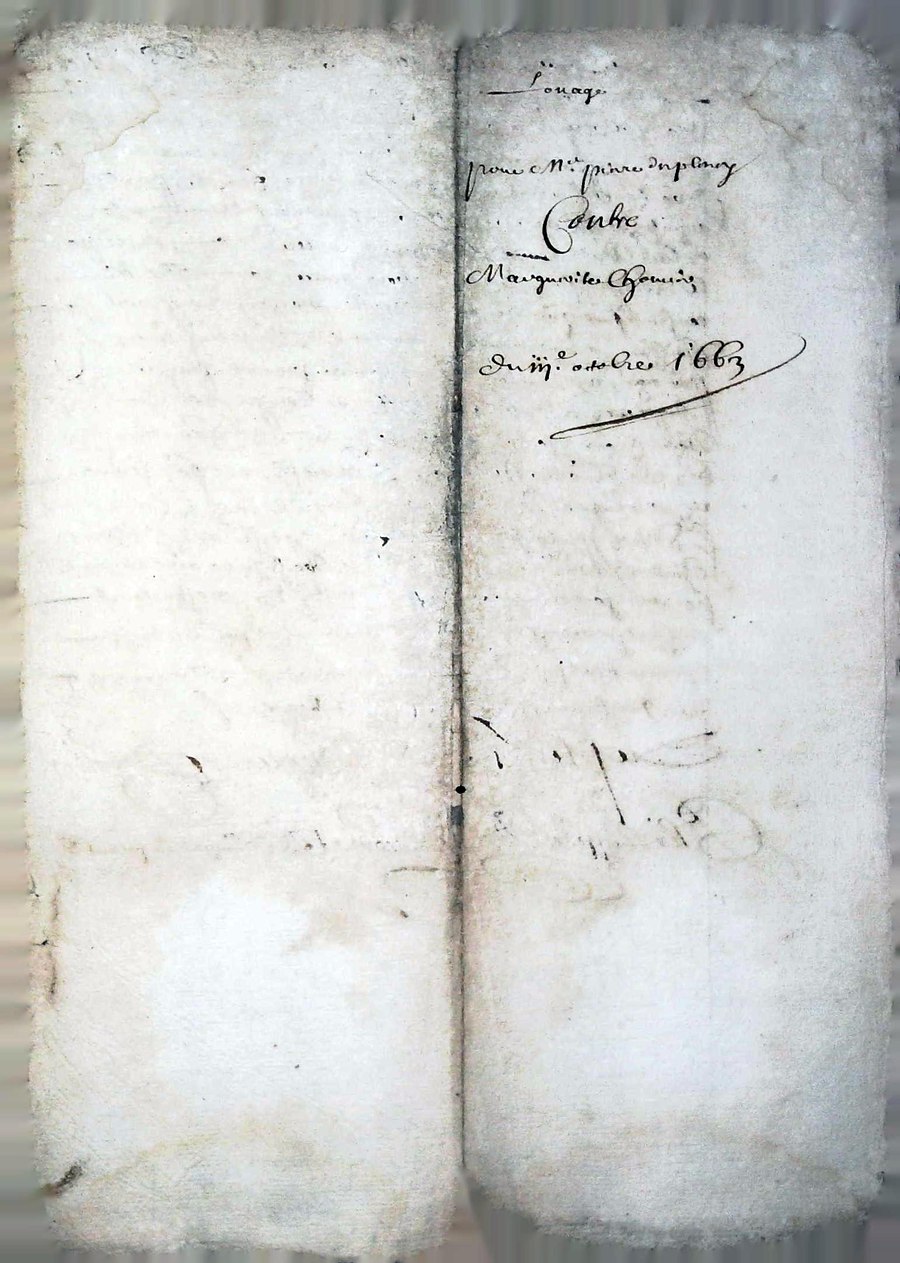 Louage
pour Me. pierre duplessy
Contre
Marguerite Chomin
Du iije. octobre 1663